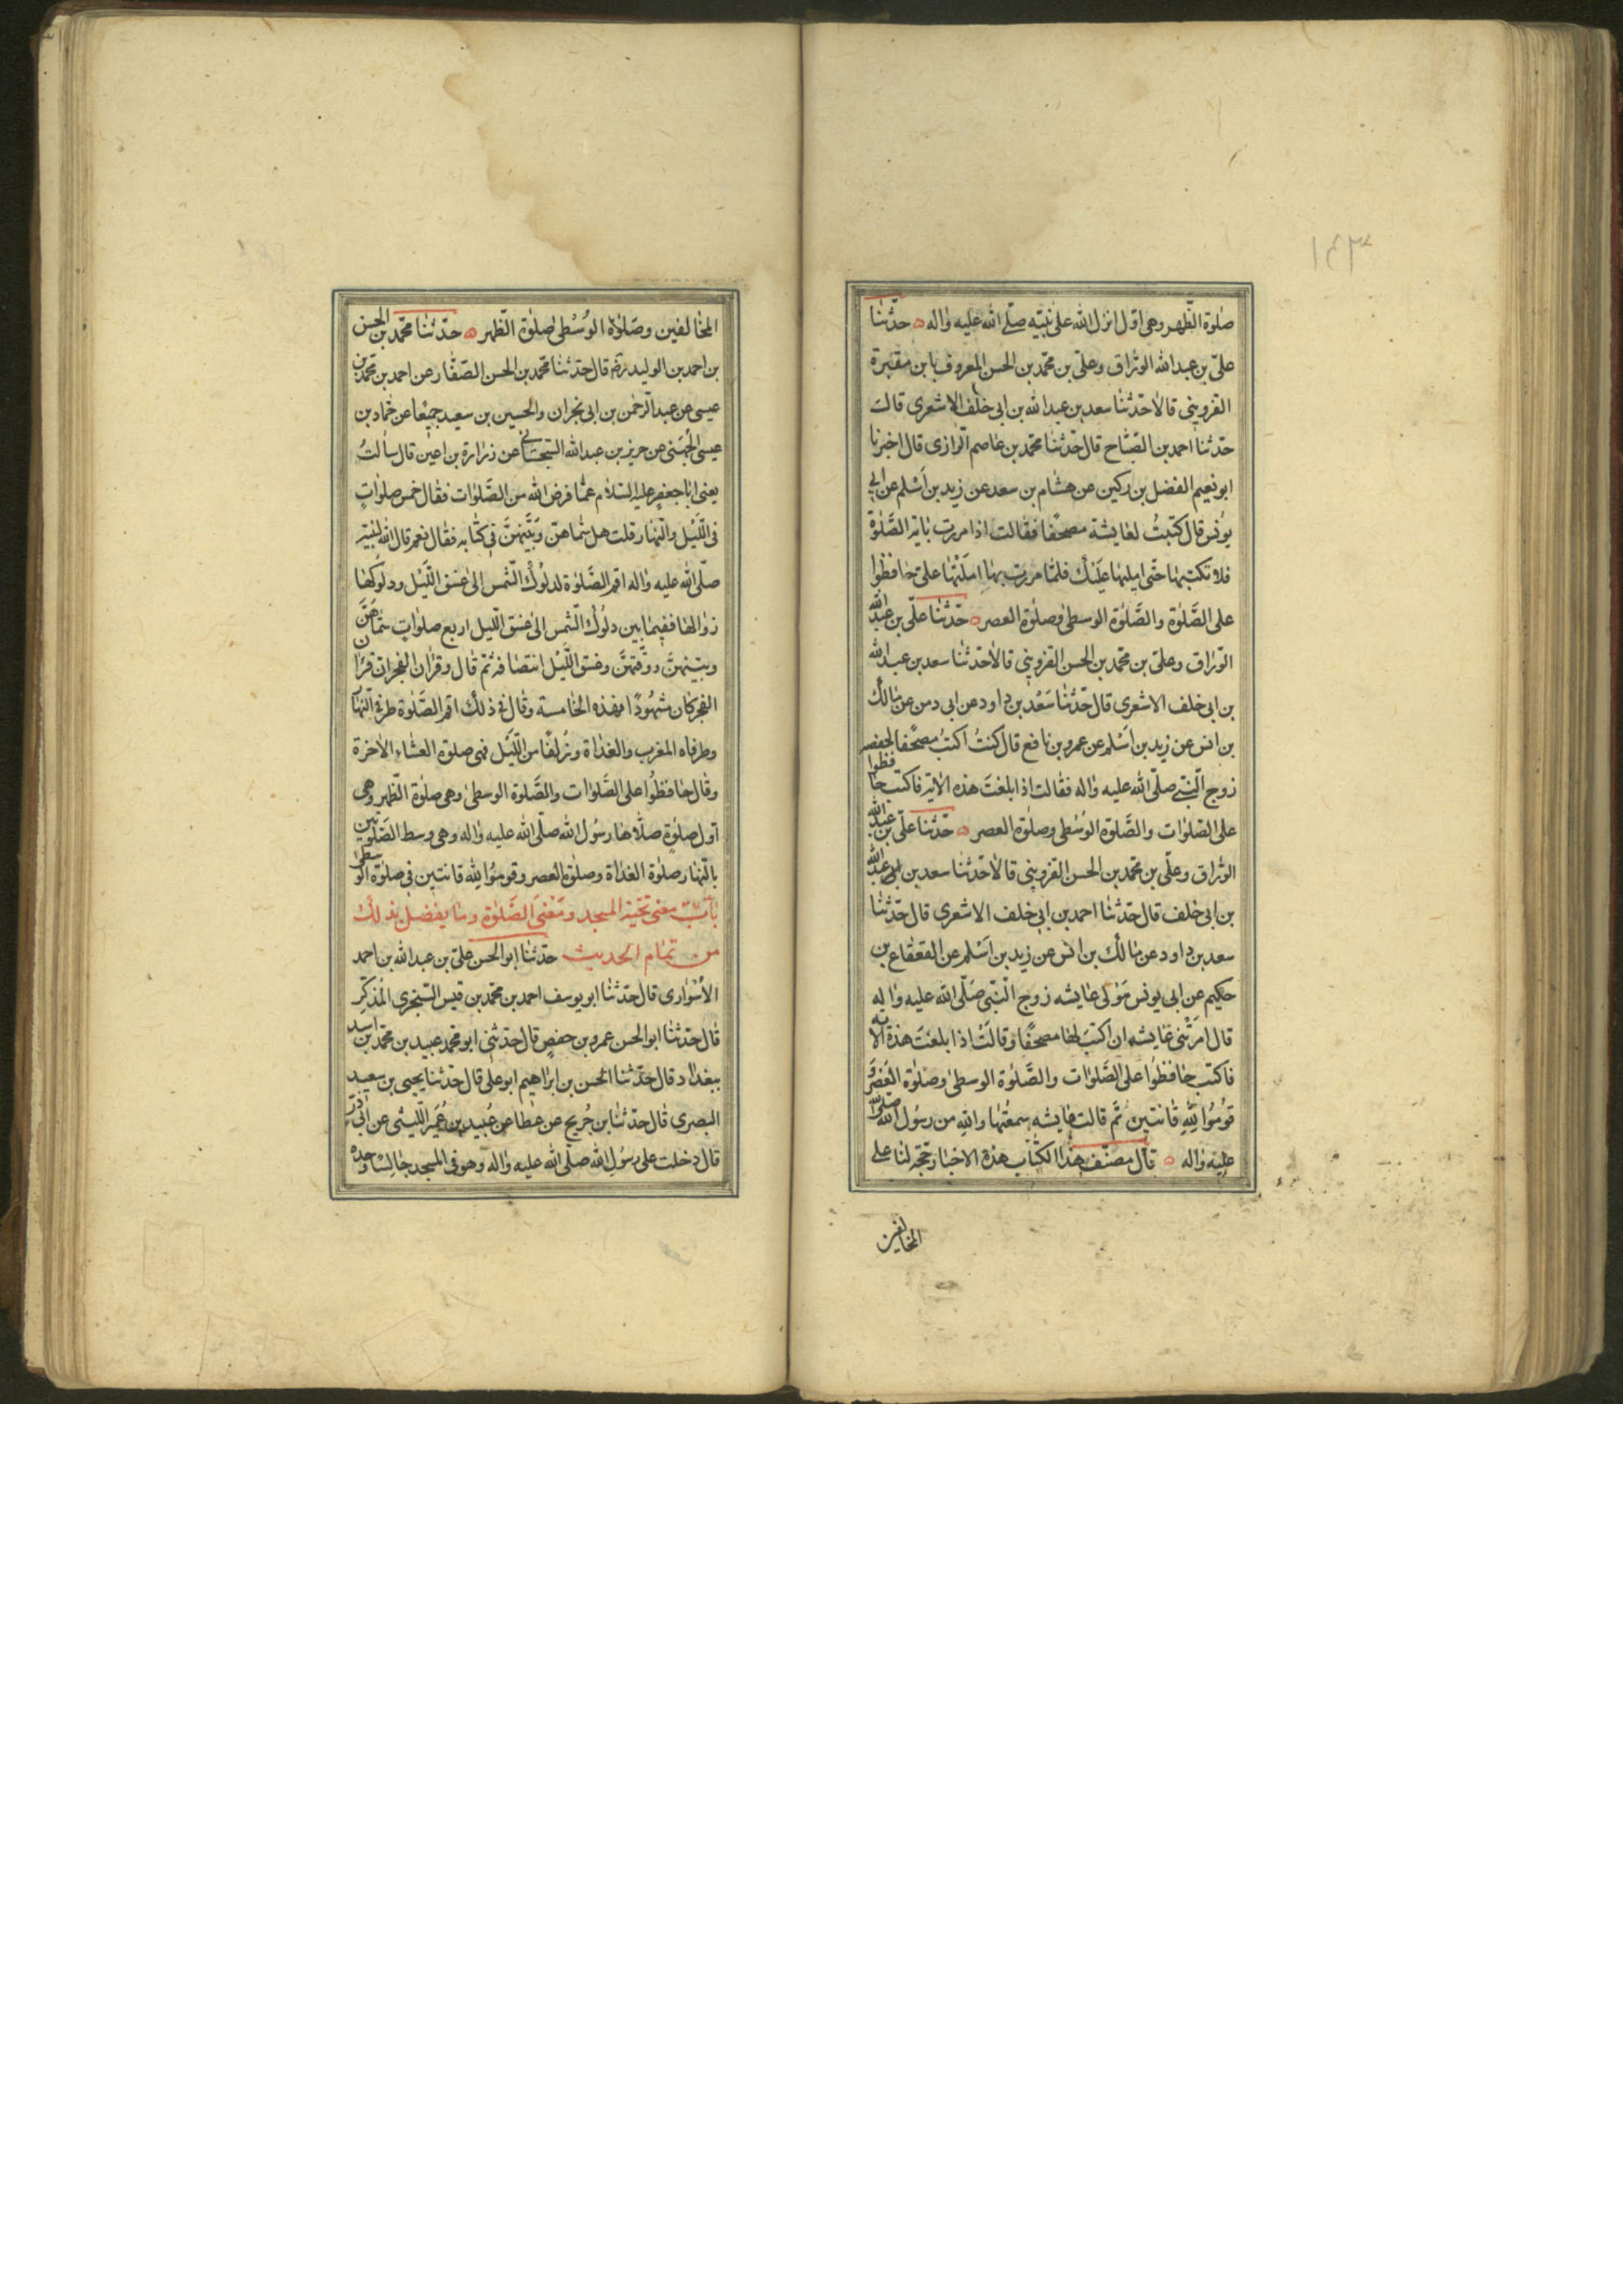 صلوة الظهر وهى اول انزل الله على نبيه صلى الله عليه واله حدثنا
على بن عبد الله الوراق وعلى بن محمد بن الحسن المعروف بابن مقبرة
القزوينى قالا حدثنا سعد بن عبد الله بن ابى خلف الاشعرى قالت
حدثنا احمد بن الصباح قال حدثنا محمد بن عاصم الرازى قال اخبرنا
ابو نعيم الفضل بن ركين عن هشام بن سعد عن زيد بن اسلم عن ابى
يونس قال كتبت لعايشة مصحفا فقالت اذا مررت باية الصلوة
فلا تكتبها حتى امليها عليك فلما مررت بها املتها على حافظوا
على الصلوة والصلوة الوسطى وصلوة العصر حدثنا على بن عبد الله
الوراق وعلى بن محمد بن الحسن القزوينى قالا حدثنا سعد بن عبد الله
بن ابى خلف الاشعرى قال حدثنا سعد بن داود عن ابى دمن عن مالك
بن انس عن زيد بن اسلم عن عمرو بن نافع قال كنت اكتب مصحفا لحفصه
زوج النبى صلى الله عليه واله فقالت اذا بلغت هذه الاية فاكتب حافظوا
على الصلوات والصلوة الوسطى وصلوة العصر حدثنا على بن عبد الله
الوراق وعلى بن محمد بن الحسن القزوينى قالا حدثنا سعد بن عبد الله
بن ابى خلف قال حدثنا احمد بن ابى خلف الاشعرى قال حدثنا
سعد بن داود عن مالك بن انس عن زيد بن اسلم عن القعقاع بن
حكيم عن ابى يونس مولى عايشه زوج النبى صلى الله عليه واله
قال امرتنى عايشه ان اكتب لها مصحفا وقالت اذا بلغت هذه الاية
فاكتب حافظوا على الصلوات والصلوة الوسطى وصلوة العصر و
قوموا لله قانتين ثم قالت عايشه سمعتها والله من رسول الله صلى الله
عليه واله قال مصنف هذا الكتاب هذه الاخبار حجة لنا على
المخالفين
المخالفين وصلوة الوسطى صلوة الظهر حدثنا محمد بن الحسن
بن احمد بن الوليد ره قال حدثنا محمد بن الحسن الصفار عن احمد بن محمد بن
عيسى عن عبد الرحمن بن ابى نجران والحسين بن سعيد جميعا عن حماد بن
عيسى الجهنى عن حريز بن عبد الله السجستانى عن زرارة بن اعين قال سالت
يعنى ابا جعفر عليه السلام عما فرض الله من الصلوات فقال خمس صلوات
فى الليل والنهار قلت هل سماهن وبينهن فى كتابه فقال نعم قال الله لنبيه
صلى الله عليه واله اقم الصلوة لدلوك الشمس الى غسق الليل ودلوكها
زوالها ففيما بين دلوك الشمس الى غسق الليل اربع صلوات سماهن
وبينهن ووقتهن وغسق الليل انتصافه ثم قال وقران الفجر ان قران
الفجر كان مشهودا فهذه الخامسة وقال فى ذلك اقم الصلوة طرفى النهار
وطرفاه المغرب والغداة وزلفا من الليل فهى صلوة العشاء الاخرة
وقال حافظوا على الصلوات والصلوة الوسطى وهى صلوة الظهر وهى
اول صلوة صلاها رسول الله صلى الله عليه واله وهى وسط الصلوتين
بالنهار صلوة الغداة وصلوة العصر وقوموا لله قانتين فى صلوة الوسطى
باب معنى تحية المسجد ومعنى الصلوة وما يفضل بذلك
من تمام الحديث حدثنا ابو الحسن على بن عبد الله بن احمد
الاسوارى قال حدثنا ابو يوسف احمد بن محمد بن قيس السنجرى المذكر
قال حدثنا ابو الحسن عمرو بن حفص قال حدثنى ابو محمد عبيد بن محمد بن اسد
ببغداد قال حدثنا الحسن بن ابراهيم ابو على قال حدثنا يحيى بن سعيد
البصرى قال حدثنا بن جريح عن عطا عن عبيد بن عمير الليثى عن ابى ذر
قال دخلت على رسول الله صلى الله عليه واله وهو فى المسجد جالسا وحده